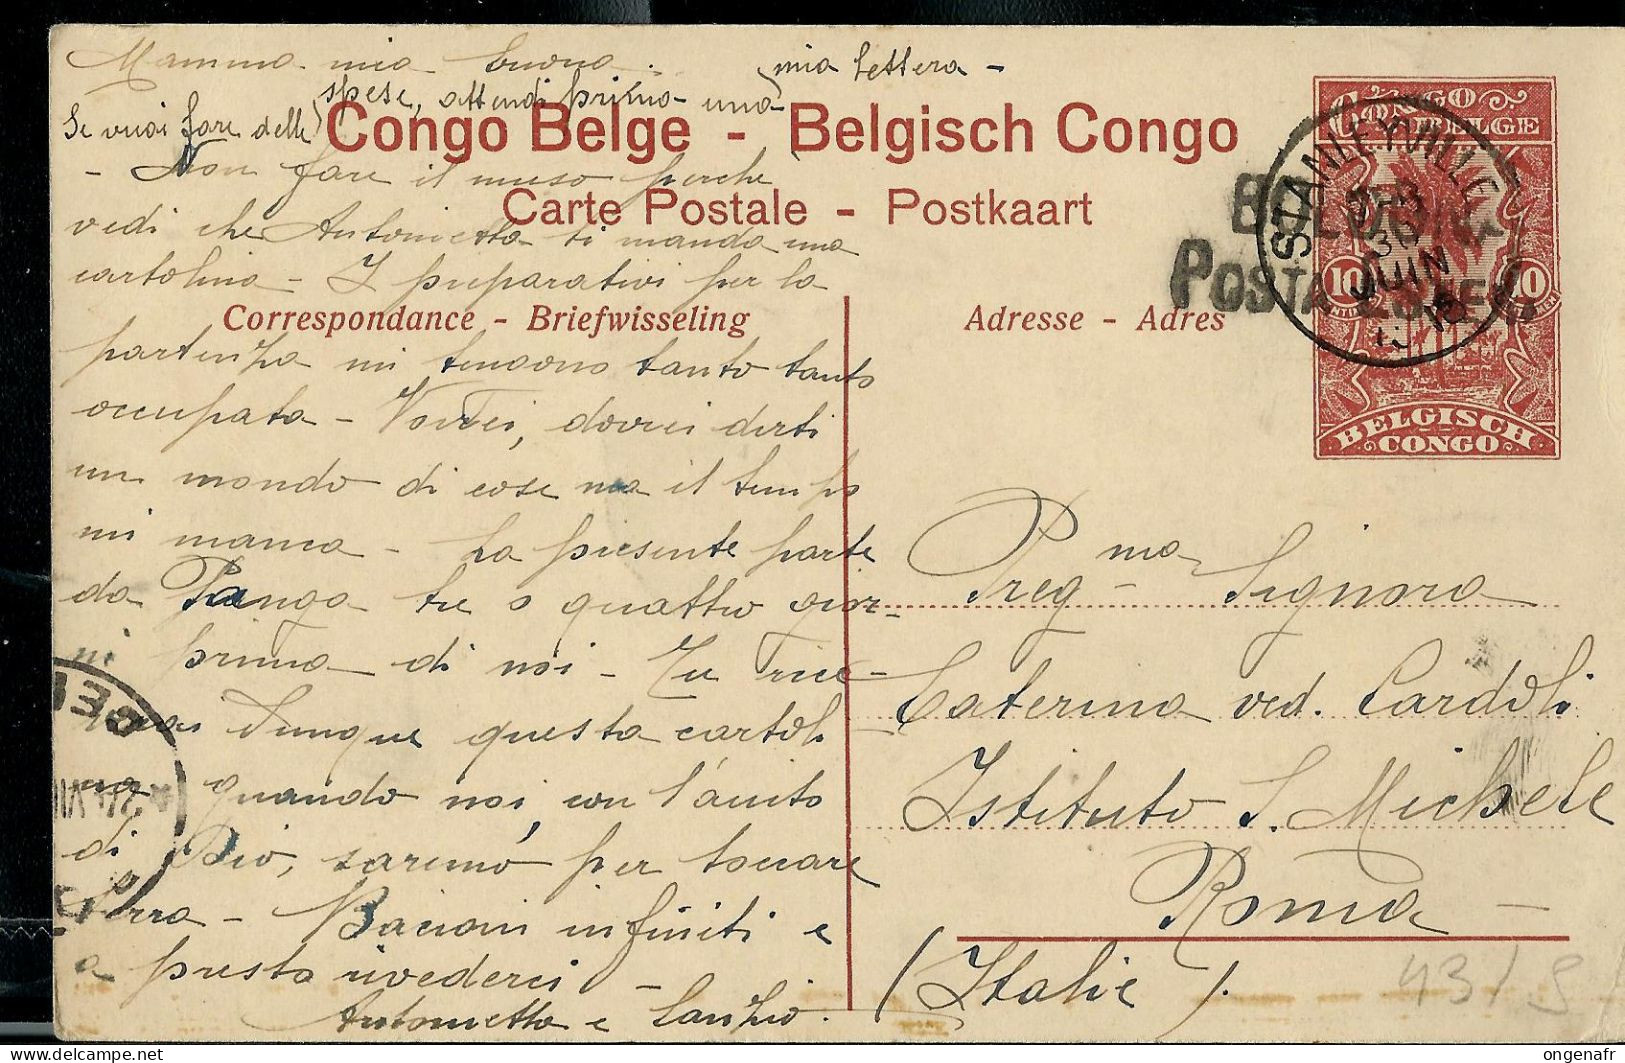 Mamma mia buona.
Se vuoi fare delle
spese, attendi prima una
mia lettera -
Congo Belge - Belgisch Congo
Carte Postale - Postkaart
Correspondance - Briefwisseling
Adresse - Adres
- Non fare il muso perche
vedi che Antonietta ti manda una
cartolina - I preparativi per la
partenza mi tengono tanto tanto
occupata - Vorrei, dovrei dirti
un mondo di cose ma il tempo
mi manca - La presente parte
da Panga tre o quattro gior-
ni prima di noi - Tu rice-
verai dunque questa cartoli
na quando noi, con l'aiuto
di Dio, saremo per toccare
terra - Bacioni infiniti e
a presto rivederci -
Antonietta e Sanzio.
CONGO BELGE
10
10
BELGISCH
CONGO
STANLEYVILLE
30
JUIN
BOLOGNA
POSTA ESTERA
Preg ma Signora
Caterina ved. Cardoli
Istituto S. Michele
Roma -
(Italie).
43/S
ongenafr